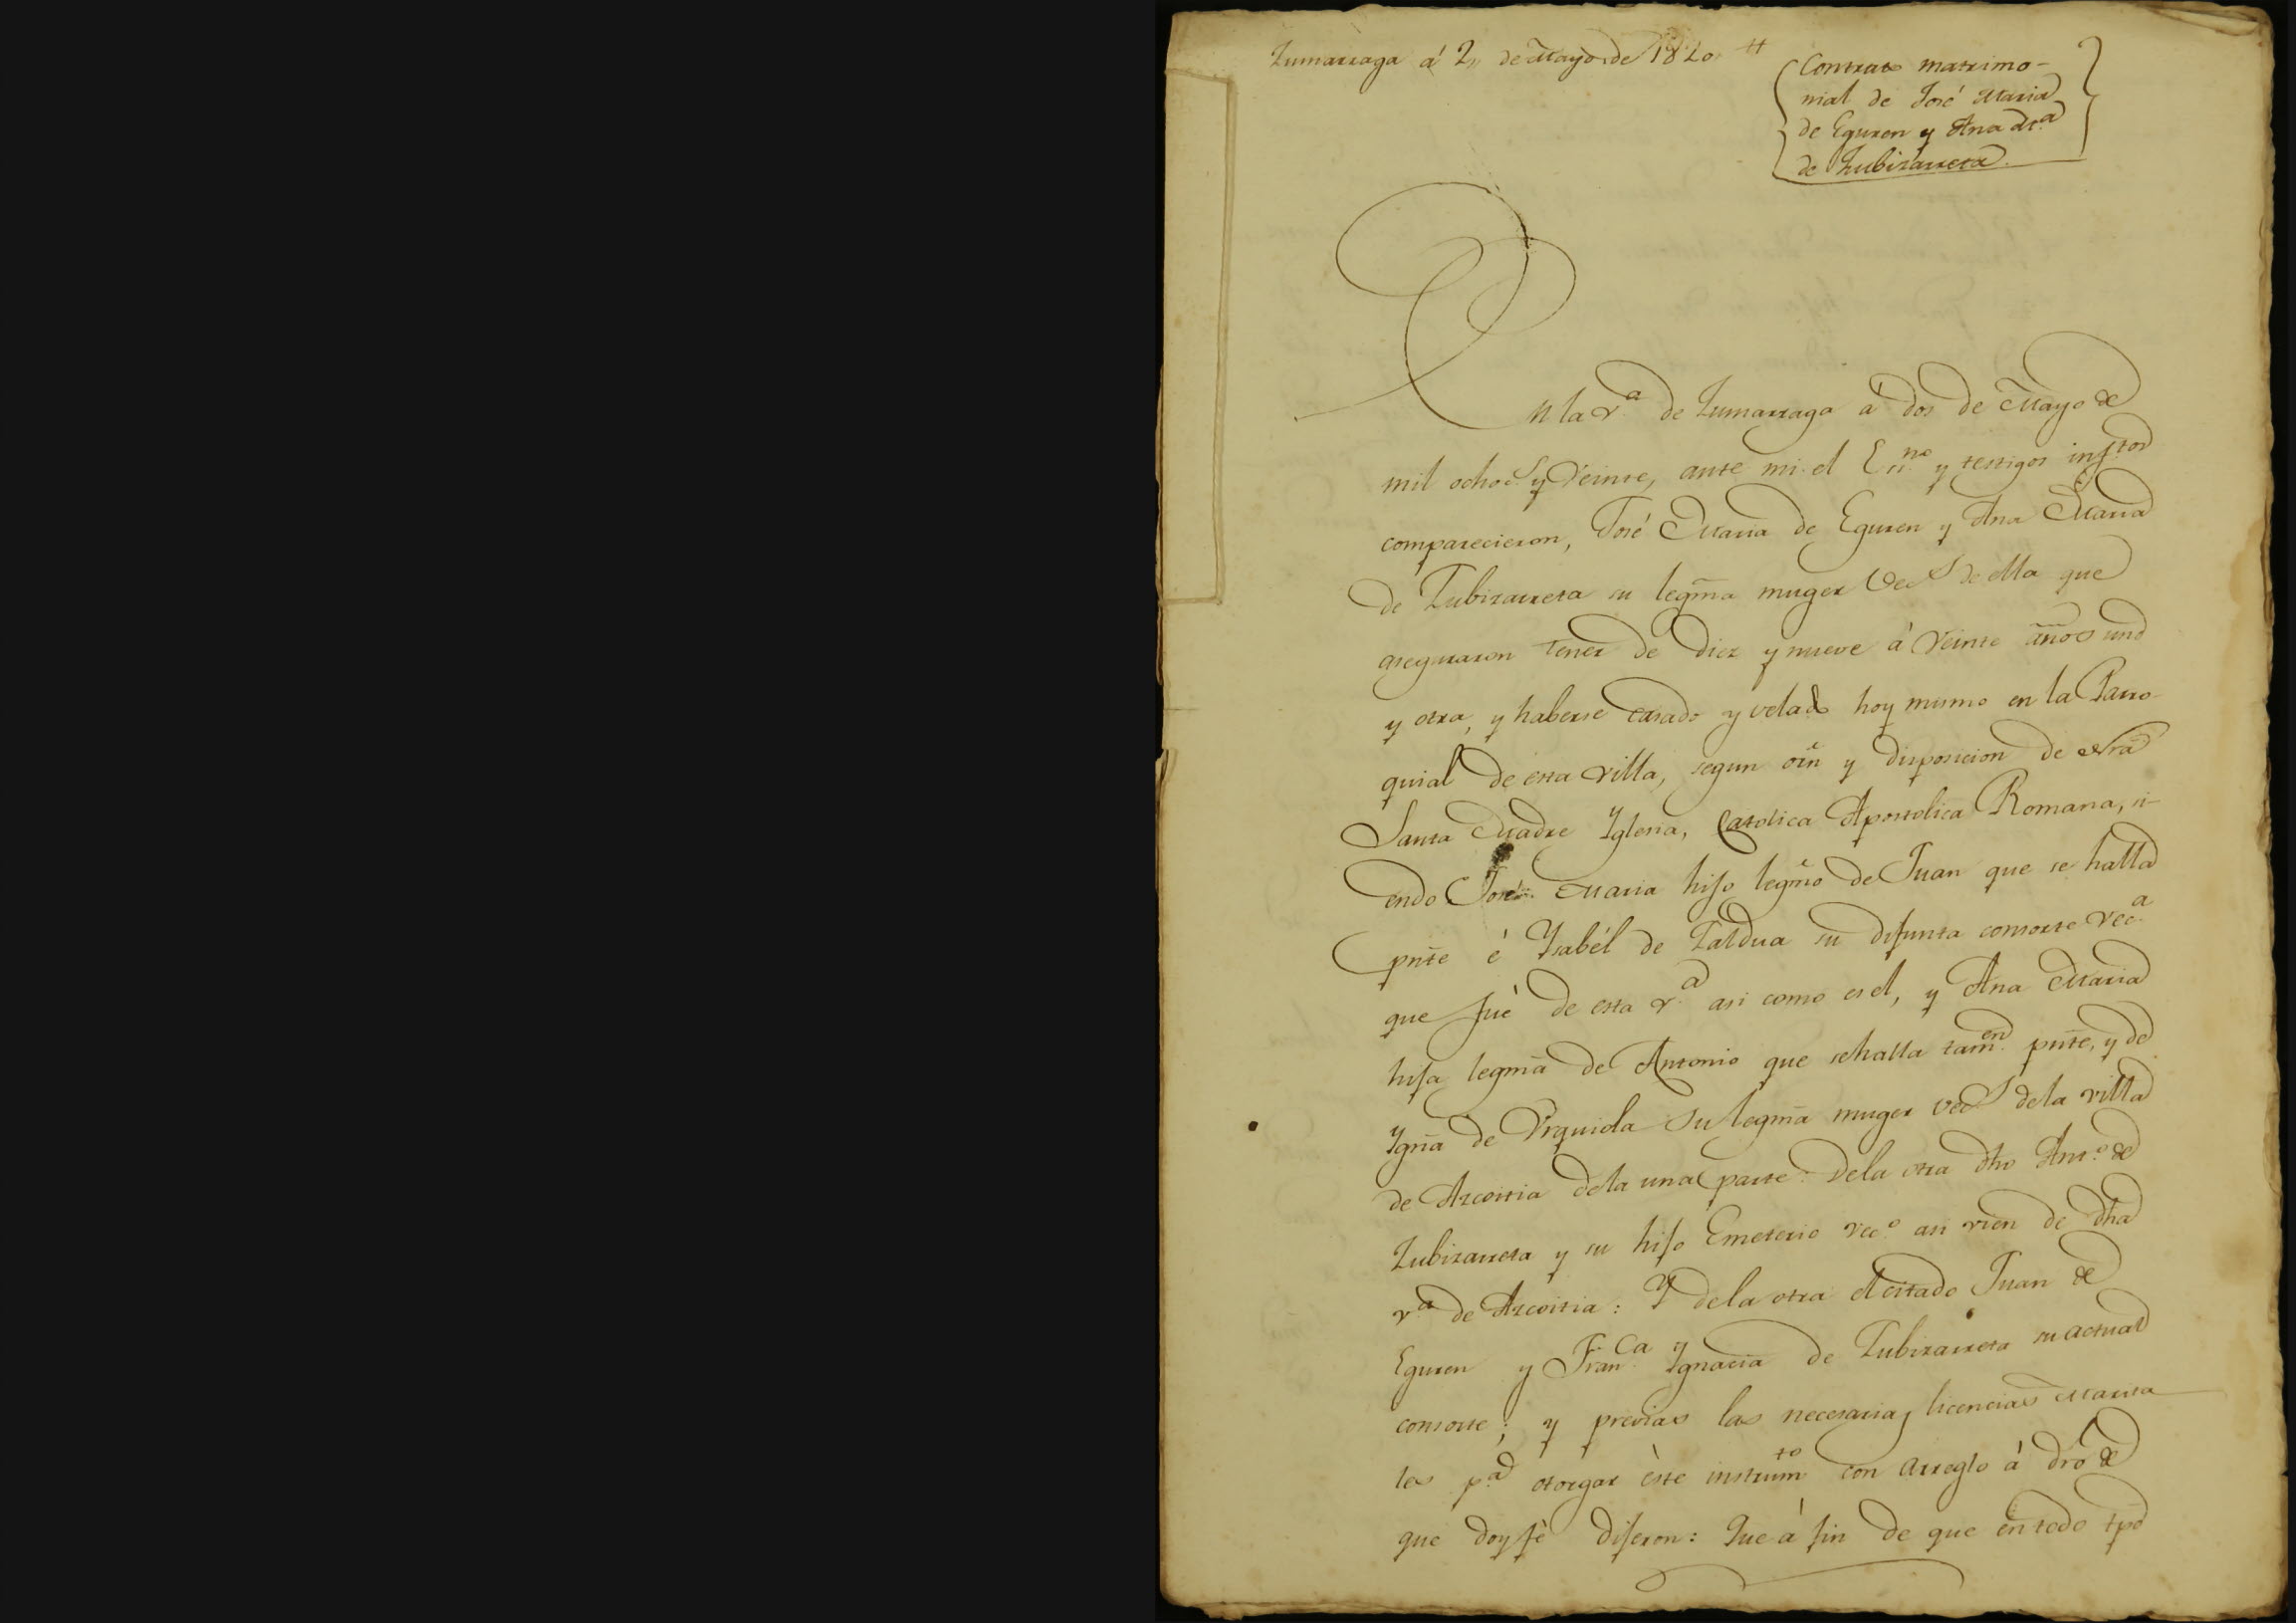 Zumarraga á 2,, de Mayo de 1820 "
Contrato matrimo-
nial de José Maria
de Eguren y Ana M.ª
de Zubizarreta.
En la v.ª de Zumarraga á dos de Mayo de
mil ochoc.s y Veinte, ante mi el Es.no y testigos infs.tos
comparecieron, José Maria de Eguren y Ana Maria
de Zubizarreta su legma muger Vec.s de ella que
aseguraron tener de Diez y nueve á Veinte años uno
y otra, y haberse casado y velado hoy mismo en la Parro-
quial de esta villa, segun orn y disposicion de Nra
Santa Madre Yglesia, Catolica Apostolica Romana, si-
endo José Maria hijo legmo de Juan que se halla
pnte é Ysabél de Zaldua su difunta consorte vec.ª
que fué de esta v.ª asi como es el, y Ana Maria
hija legma de Antonio que se halla tam.en pnte, y de
Ygna de Urquiola su legma muger vec.s de la villa
de Azcoitia de la una parte: De la otra dho Ant.º de
Zubizarreta y su hijo Emeterio vec.º asi vien de dha
v.ª de Azcoitia: Y de la otra el citado Juan de
Eguren y Fran.ca Ygnacia de Zubizarreta su actual
consorte; y previas las necesarias licencias Marita
les p.ª otorgar éste instrum.to con arreglo á dro de
que doy fé dijeron: Que á fin de que en todo tpo